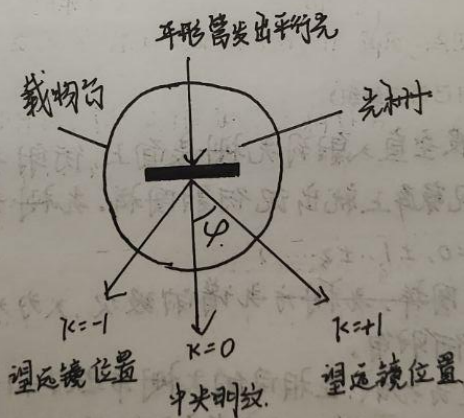 平形管发出平行光
载物台
光栅
φ
K=-1
K=0
K=+1
望远镜位置
中央明纹.
望远镜位置